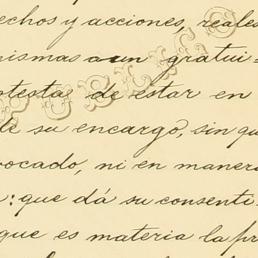 echos y acciones, reales
mismas aun gratui=
otesta de estar en
de su encargo, sin qu
ocado, ni en maner
: que dá su consenti
que es materia la pr